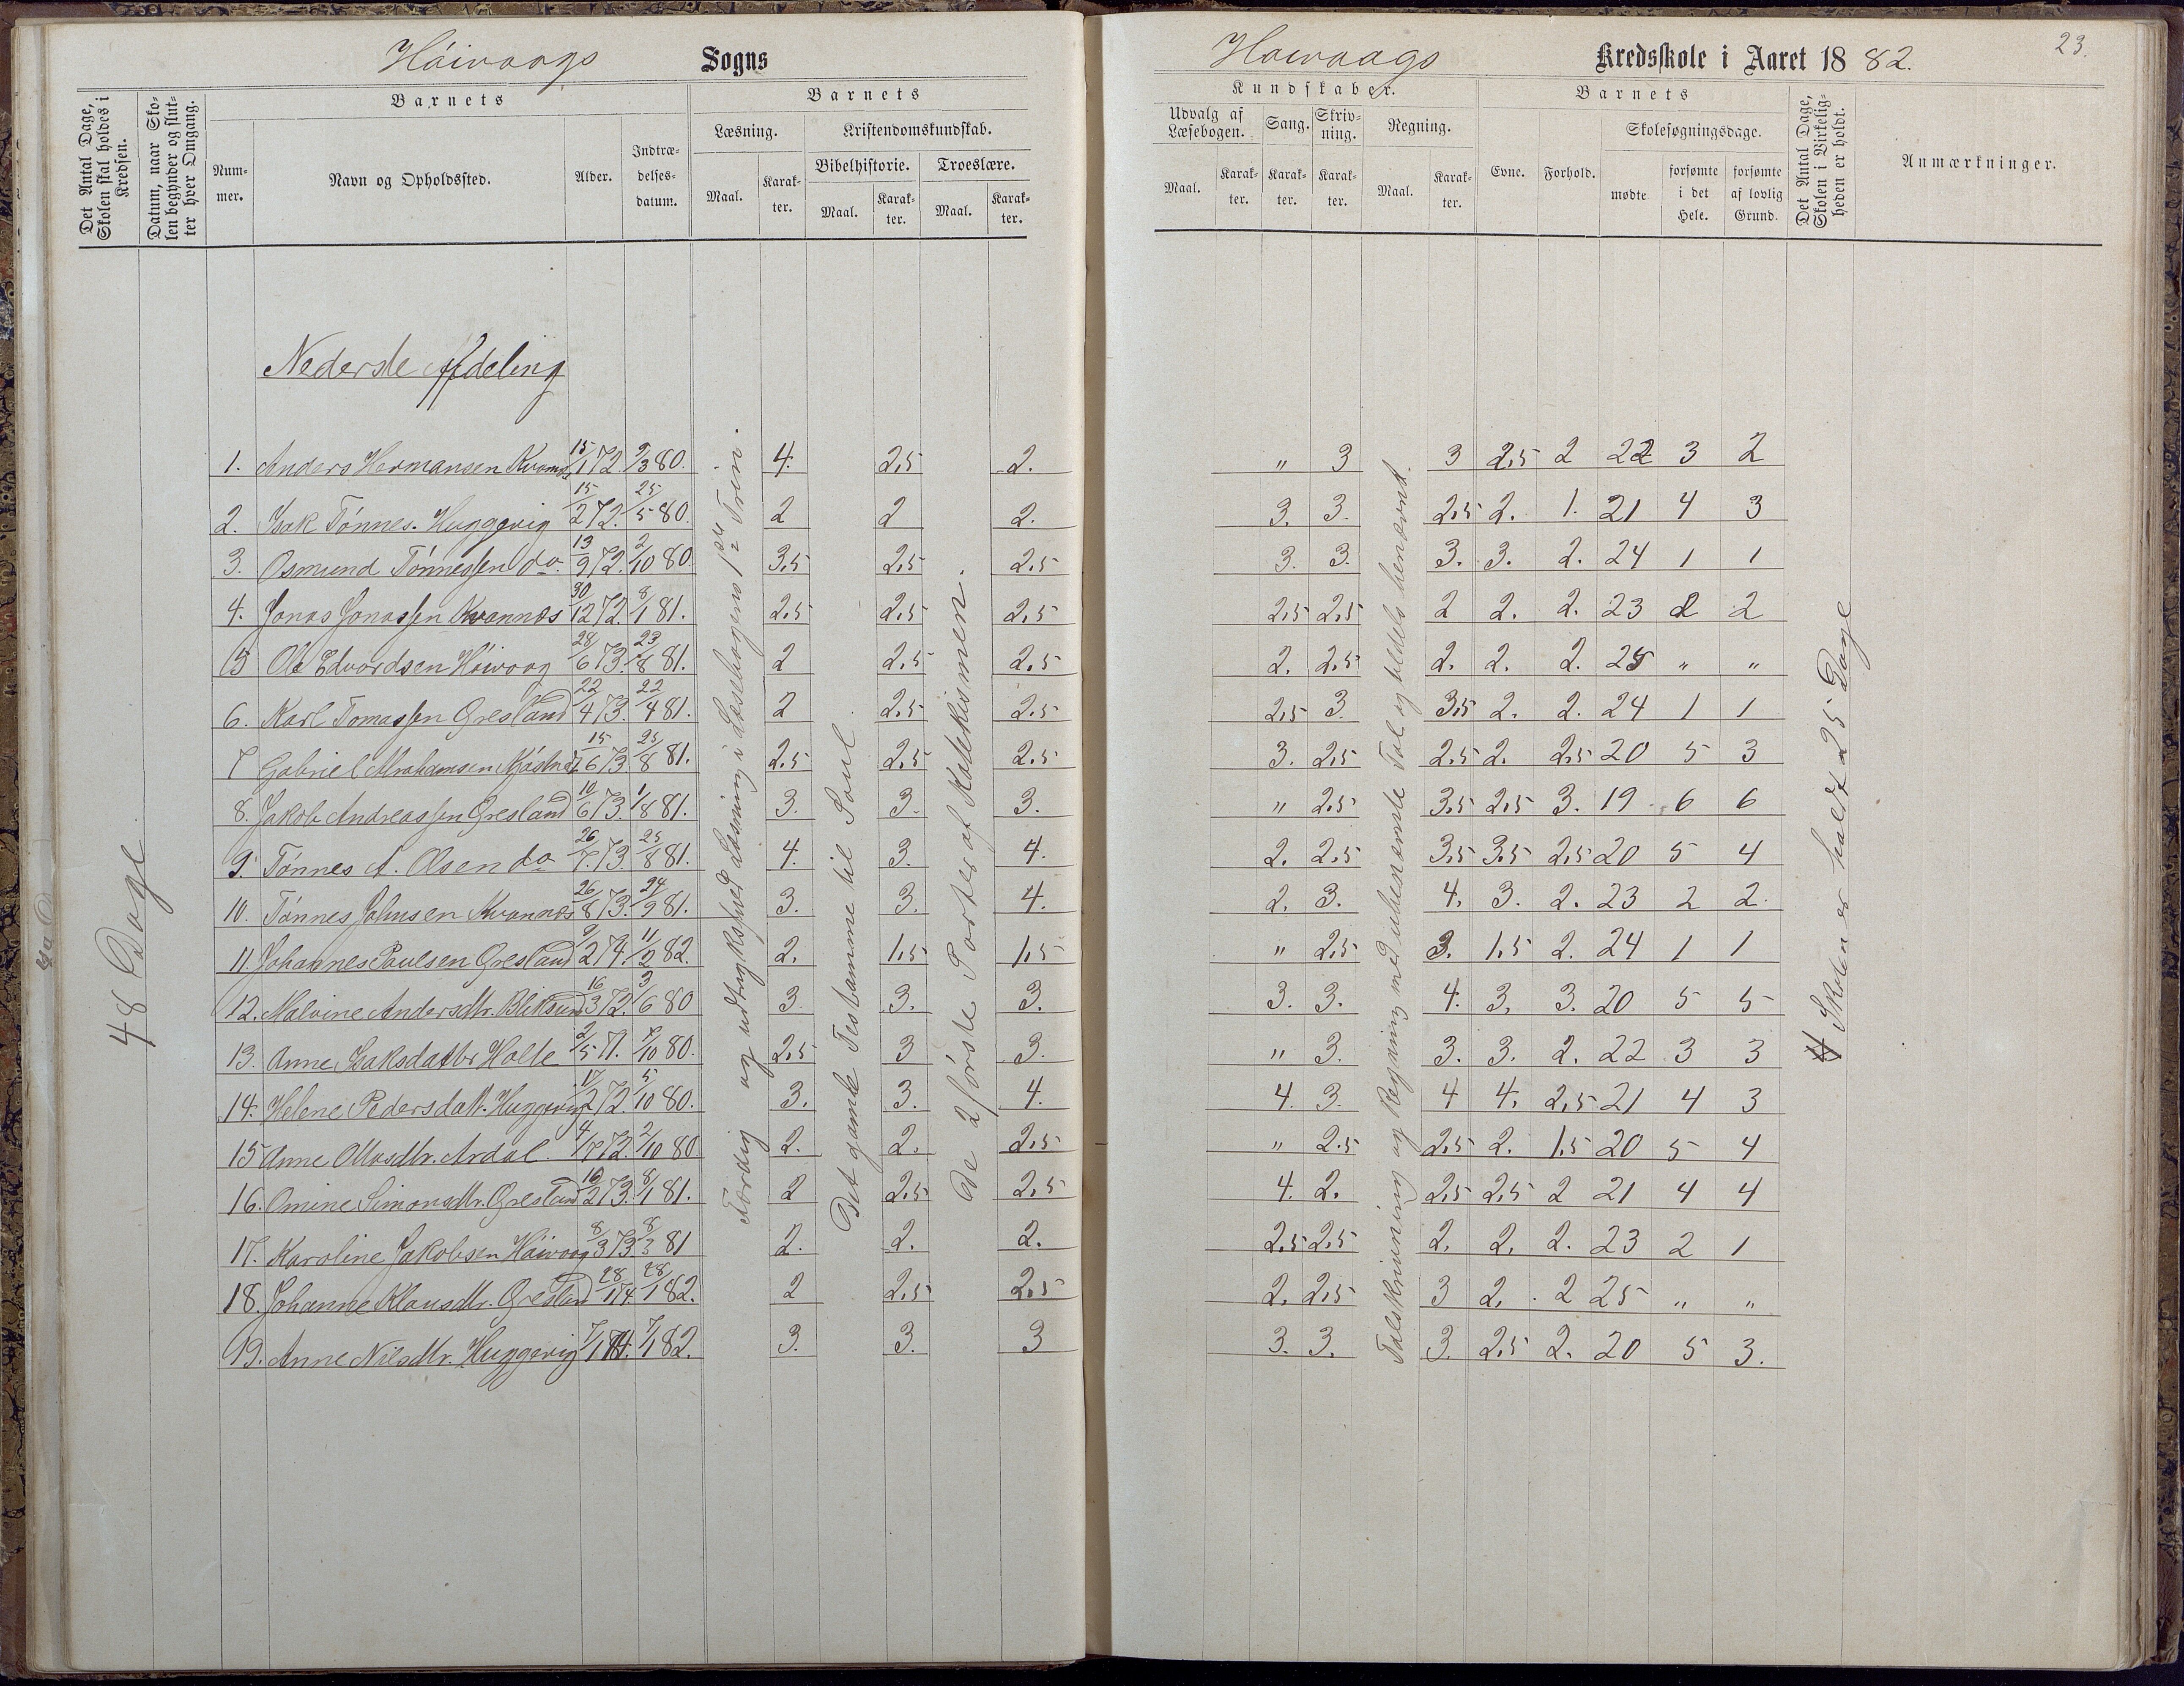 Höivaags Sogns
Det Antal Dage, Skolen skal holdes i Kredsen.
Datum, naar Skolen begynder og slutter hver Omgang.
Barnets
Nummer.
Navn og Opholdssted.
Alder.
Indtrædelsesdatum.
Barnets
Læsning.
Maal.
Karakter.
Kristendomskundskab.
Bibelhistorie.
Maal.
Karakter.
Troeslære.
Maal.
Karakter.
48 Dage
Nederste Afdeling
1. Anders Hermansen 15/1 72. 9/3 80. 4. 2,5 2.
2. Isak Tønnes. Huggevig 15/2 72. 25/5 80. 2 2 2.
3. Osmund Tønnessen do. 13/9 72. 2/10 80. 3,5 2,5 2,5
4. Jonas Jonassen Kvannes 30/12 72. 8/1 81. 2,5 2,5 2,5
5 Ole Edvardsen Höivaag 28/6 73. 23/8 81. 2 2,5 2,5
6. Karl Tomassen Gresland 22/4 73. 22/4 81. 2 2,5 2,5
7 Gabriel Abrahamsen 15/6 73. 25/8 81. 2,5 2,5 2,5
8. Jakob Andreassen Gresland 10/6 73. 1/8 81. 3. 3. 3.
9. Tønnes A. Olsen do 26/7 73. 25/8 81. 4. 3. 4.
10. Tønnes Johnsen Kvannes 26/8 73. 24/9 81. 3. 3. 4.
11. Johannes Paulsen Gresland 9/2 74. 11/2 82. 2. 1,5 1,5
12. Malvine Andersdtr. Bliksund 16/3 72. 3/6 80 3. 3. 3.
13. Anne Isaksdatter Holte 2/5 71. 7/10 80. 2,5 3 3.
14. Helene Pedersdatt. Huggevig 17/2 72. 5/10 80. 3. 3. 4.
15 Anne Ottosdtr. Ardal. 4/7 72. 2/10 80 2. 2. 2,5
16. Omine Simonsdtr. Gresland 16/2 73. 8/1 81. 2 2,5 2,5
17. Karoline Jakobsen Höivaag 8/3 73. 8/3 81 2. 2. 2.
18. Johanne Klausdtr. Gresland 28/1 74. 28/1 82. 2 2,5 2,5
19. Anne Nilsdtr. Huggevig 7/1 74. 7/1 82. 3. 3. 3
Færdig og udtryksfuld Læsning i Læsebogens 1ste Trin.
Det gamle Testamente til Saul
De 2 første Parter af Katekismen.
Höivaags Kredsskole i Aaret 1882.
23.
Kundskaber.
Udvalg af Læsebogen.
Maal.
Karakter.
Sang.
Karakter.
Skrivning.
Karakter.
Regning.
Maal.
Karakter.
Barnets
Evne.
Forhold.
Skolesøgningsdage.
mødte
forsømte i det Hele.
forsømte af lovlig Grund.
Det Antal Dage, Skolen i Virkeligheden er holdt.
Anmærkninger.
" 3 3 2,5 2 22 3 2
3. 3. 2,5 2. 1. 21 4 3
3. 3. 3. 3. 2. 24 1 1
2,5 2,5 2 2. 2. 23 2 2
2. 2,5 2. 2. 2. 25 " "
2,5 3. 3,5 2. 2. 24 1 1
3. 2,5 2,5 2. 2,5 20 5 3
" 2,5 3,5 2,5 3. 19 6 6
2. 2,5 3,5 3,5 2,5 20 5 4
2. 3. 4. 3. 2. 23 2 2.
" 2,5 3. 1,5 2. 24 1 1
3. 3. 4. 3. 3. 20 5 5
" 3. 3. 3. 2. 22 3 3
4. 3. 4 4. 2,5 21 4 3
" 2.5 2,5 2. 1,5 20 5 4
4. 2. 2,5 2,5 2 21 4 4
2,5 2,5 2. 2. 2. 23 2 1
2. 2,5 3 2. 2 25 " "
3. 3. 3. 2,5 2. 20 5 3.
Talskrivning og Regning med ubenævnte Tal og tildels benævnt.
Skolen er holdt 25 Dage